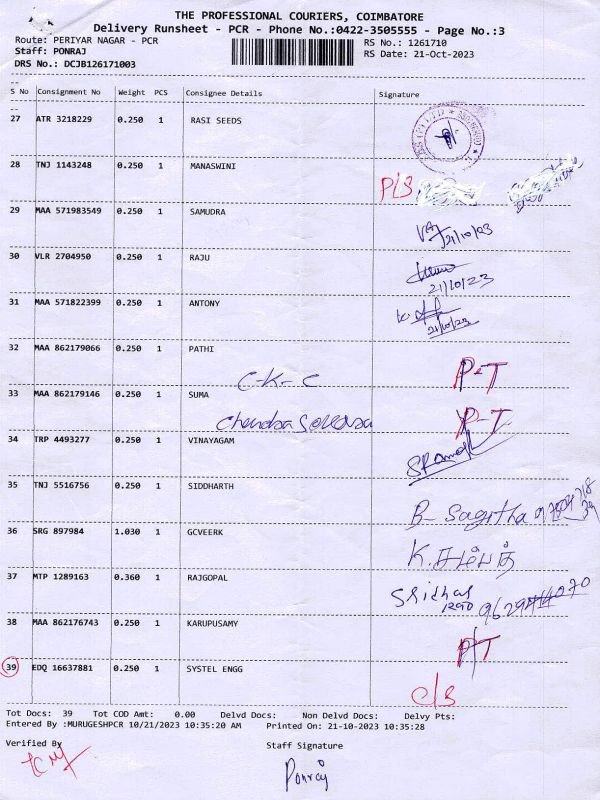 THE PROFESSIONAL COURIERS, COIMBATORE
Delivery Runsheet - PCR - Phone No.:0422-3505555 - Page No.:3
Route: PERIYAR NAGAR - PCR RS No.: 1261710
Staff: PONRAJ RS Date: 21-Oct-2023
DRS No.: DCJB126171003
S No Consignment No Weight PCS Consignee Details Signature
27 ATR 3218229 0.250 1 RASI SEEDS
28 TNJ 1143248 0.250 1 MANASWINI
P/S
29 MAA 571983549 0.250 1 SAMUDRA
21/10/23
30 VLR 2704950 0.250 1 RAJU
21/10/23
31 MAA 571822399 0.250 1 ANTONY
21/10/23
32 MAA 862179066 0.250 1 PATHI
C-K-C P-T
33 MAA 862179146 0.250 1 SUMA
P-T
34 TRP 4493277 0.250 1 VINAYAGAM
35 TNJ 5516756 0.250 1 SIDDHARTH
36 SRG 897984 1.030 1 GCVEERK
37 MTP 1289163 0.360 1 RAJGOPAL
Sridhar
38 MAA 862176743 0.250 1 KARUPUSAMY
P/T
39 EDQ 16637881 0.250 1 SYSTEL ENGG
C/S
Tot Docs: 39 Tot COD Amt: 0.00 Delvd Docs: Non Delvd Docs: Delvy Pts:
Entered By :MURUGESHPCR 10/21/2023 10:35:20 AM Printed On: 21-10-2023 10:35:28
Verified By Staff Signature
Ponraj